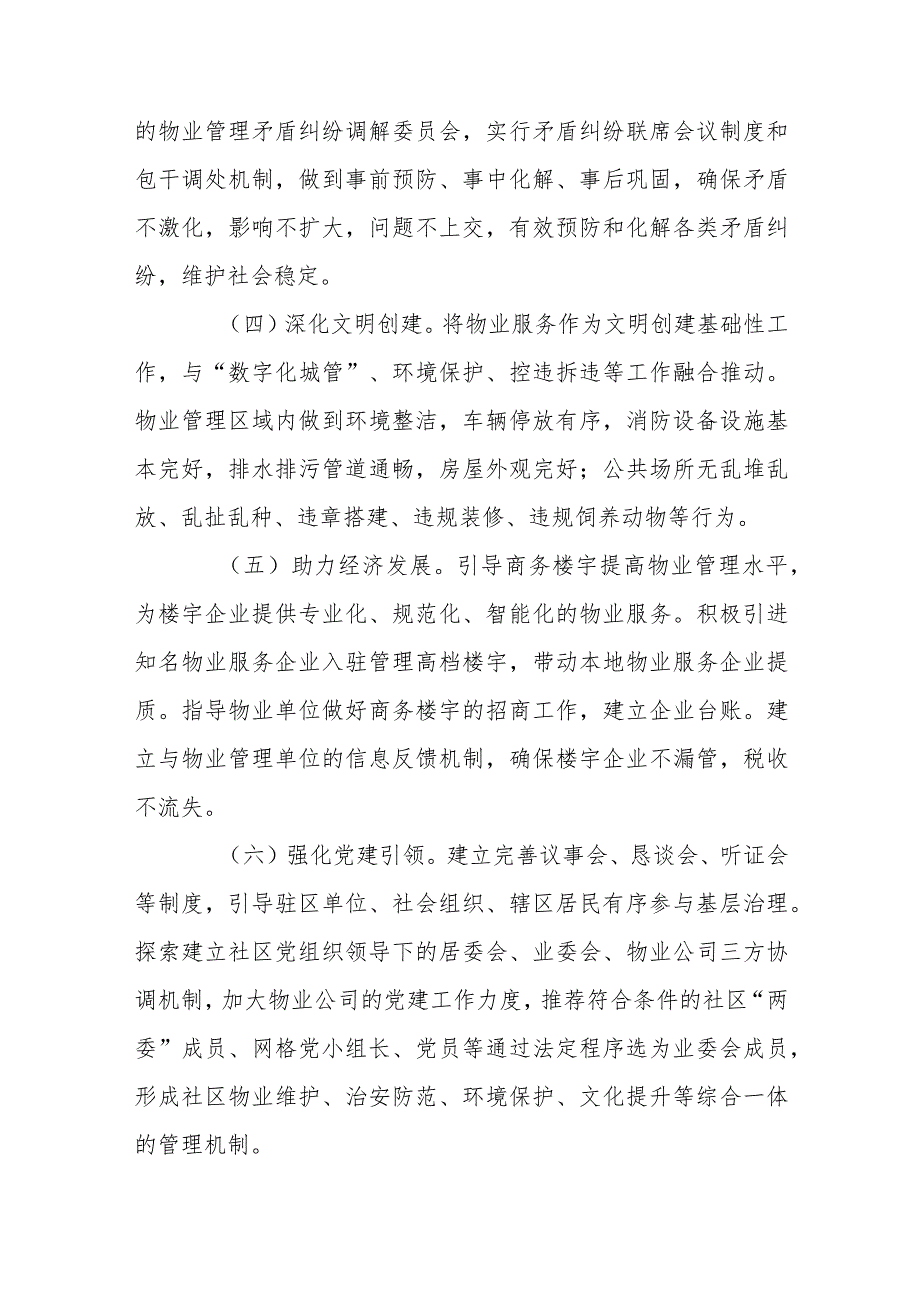 的物业管理矛盾纠纷调解委员会，实行矛盾纠纷联席会议制度和
包干调处机制，做到事前预防、事中化解、事后巩固，确保矛盾
不激化，影响不扩大，问题不上交，有效预防和化解各类矛盾纠
纷，维护社会稳定。
（四）深化文明创建。将物业服务作为文明创建基础性工
作，与“数字化城管”、环境保护、控违拆违等工作融合推动。
物业管理区域内做到环境整洁，车辆停放有序，消防设备设施基
本完好，排水排污管道通畅，房屋外观完好；公共场所无乱堆乱
放、乱扯乱种、违章搭建、违规装修、违规饲养动物等行为。
（五）助力经济发展。引导商务楼宇提高物业管理水平，
为楼宇企业提供专业化、规范化、智能化的物业服务。积极引进
知名物业服务企业入驻管理高档楼宇，带动本地物业服务企业提
质。指导物业单位做好商务楼宇的招商工作，建立企业台账。建
立与物业管理单位的信息反馈机制，确保楼宇企业不漏管，税收
不流失。
（六）强化党建引领。建立完善议事会、恳谈会、听证会
等制度，引导驻区单位、社会组织、辖区居民有序参与基层治理。
探索建立社区党组织领导下的居委会、业委会、物业公司三方协
调机制，加大物业公司的党建工作力度，推荐符合条件的社区“两
委”成员、网格党小组长、党员等通过法定程序选为业委会成员，
形成社区物业维护、治安防范、环境保护、文化提升等综合一体
的管理机制。